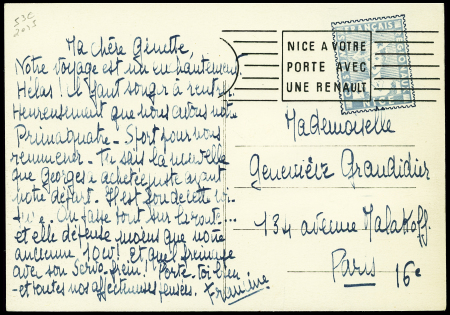 53C
Ma chère Ginette,
Notre voyage est un enchantement
Hélas! il faut songer à rentrer
Heureusement que nous avons notre
Primaquatre - Sport pour nous
remmener - Tu sais la nouvelle
que Georges a achetée juste avant
notre départ. Il est fou de cette voi-
ture. On passe tout sur la route...
et elle dépense moins que notre
ancienne 10 cv! Et quel freinage
avec son Servo-frein! Porte-toi bien
- et toutes nos affectueuses pensées.
Francine
NICE A VOTRE
PORTE AVEC
UNE RENAULT
FRANÇAIS
NICE
Mademoiselle
Geneviève Grandidier
134 avenue Malakoff.
Paris 16e